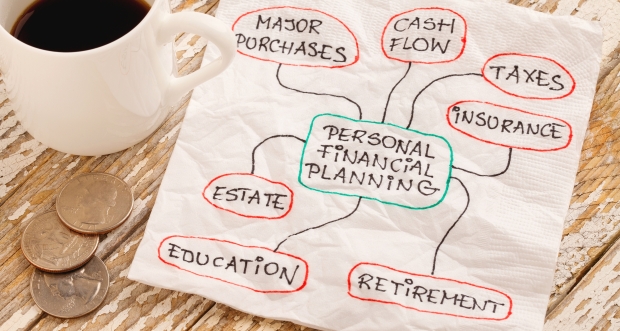 MAJOR
PURCHASES
CASH
FLOW
TAXES
INSURANCE
PERSONAL
FINANCIAL
PLANNING
ESTATE
EDUCATION
RETIREMENT